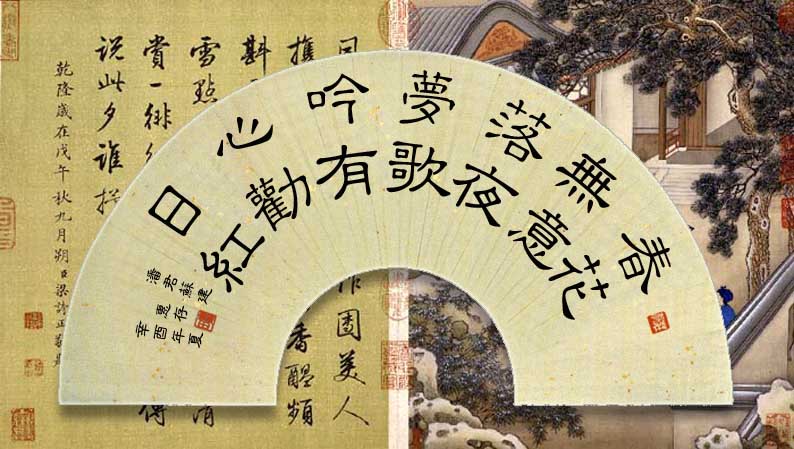 春花無意落夜夢歌吟有心勸日紅
潘君蘇建
惠存
辛酉年夏
作園美人
攜
香醞頻
斟
雪點
消
賞一徘
說此夕誰
得
乾隆歲在戊午秋九月朔臣梁詩正敬題